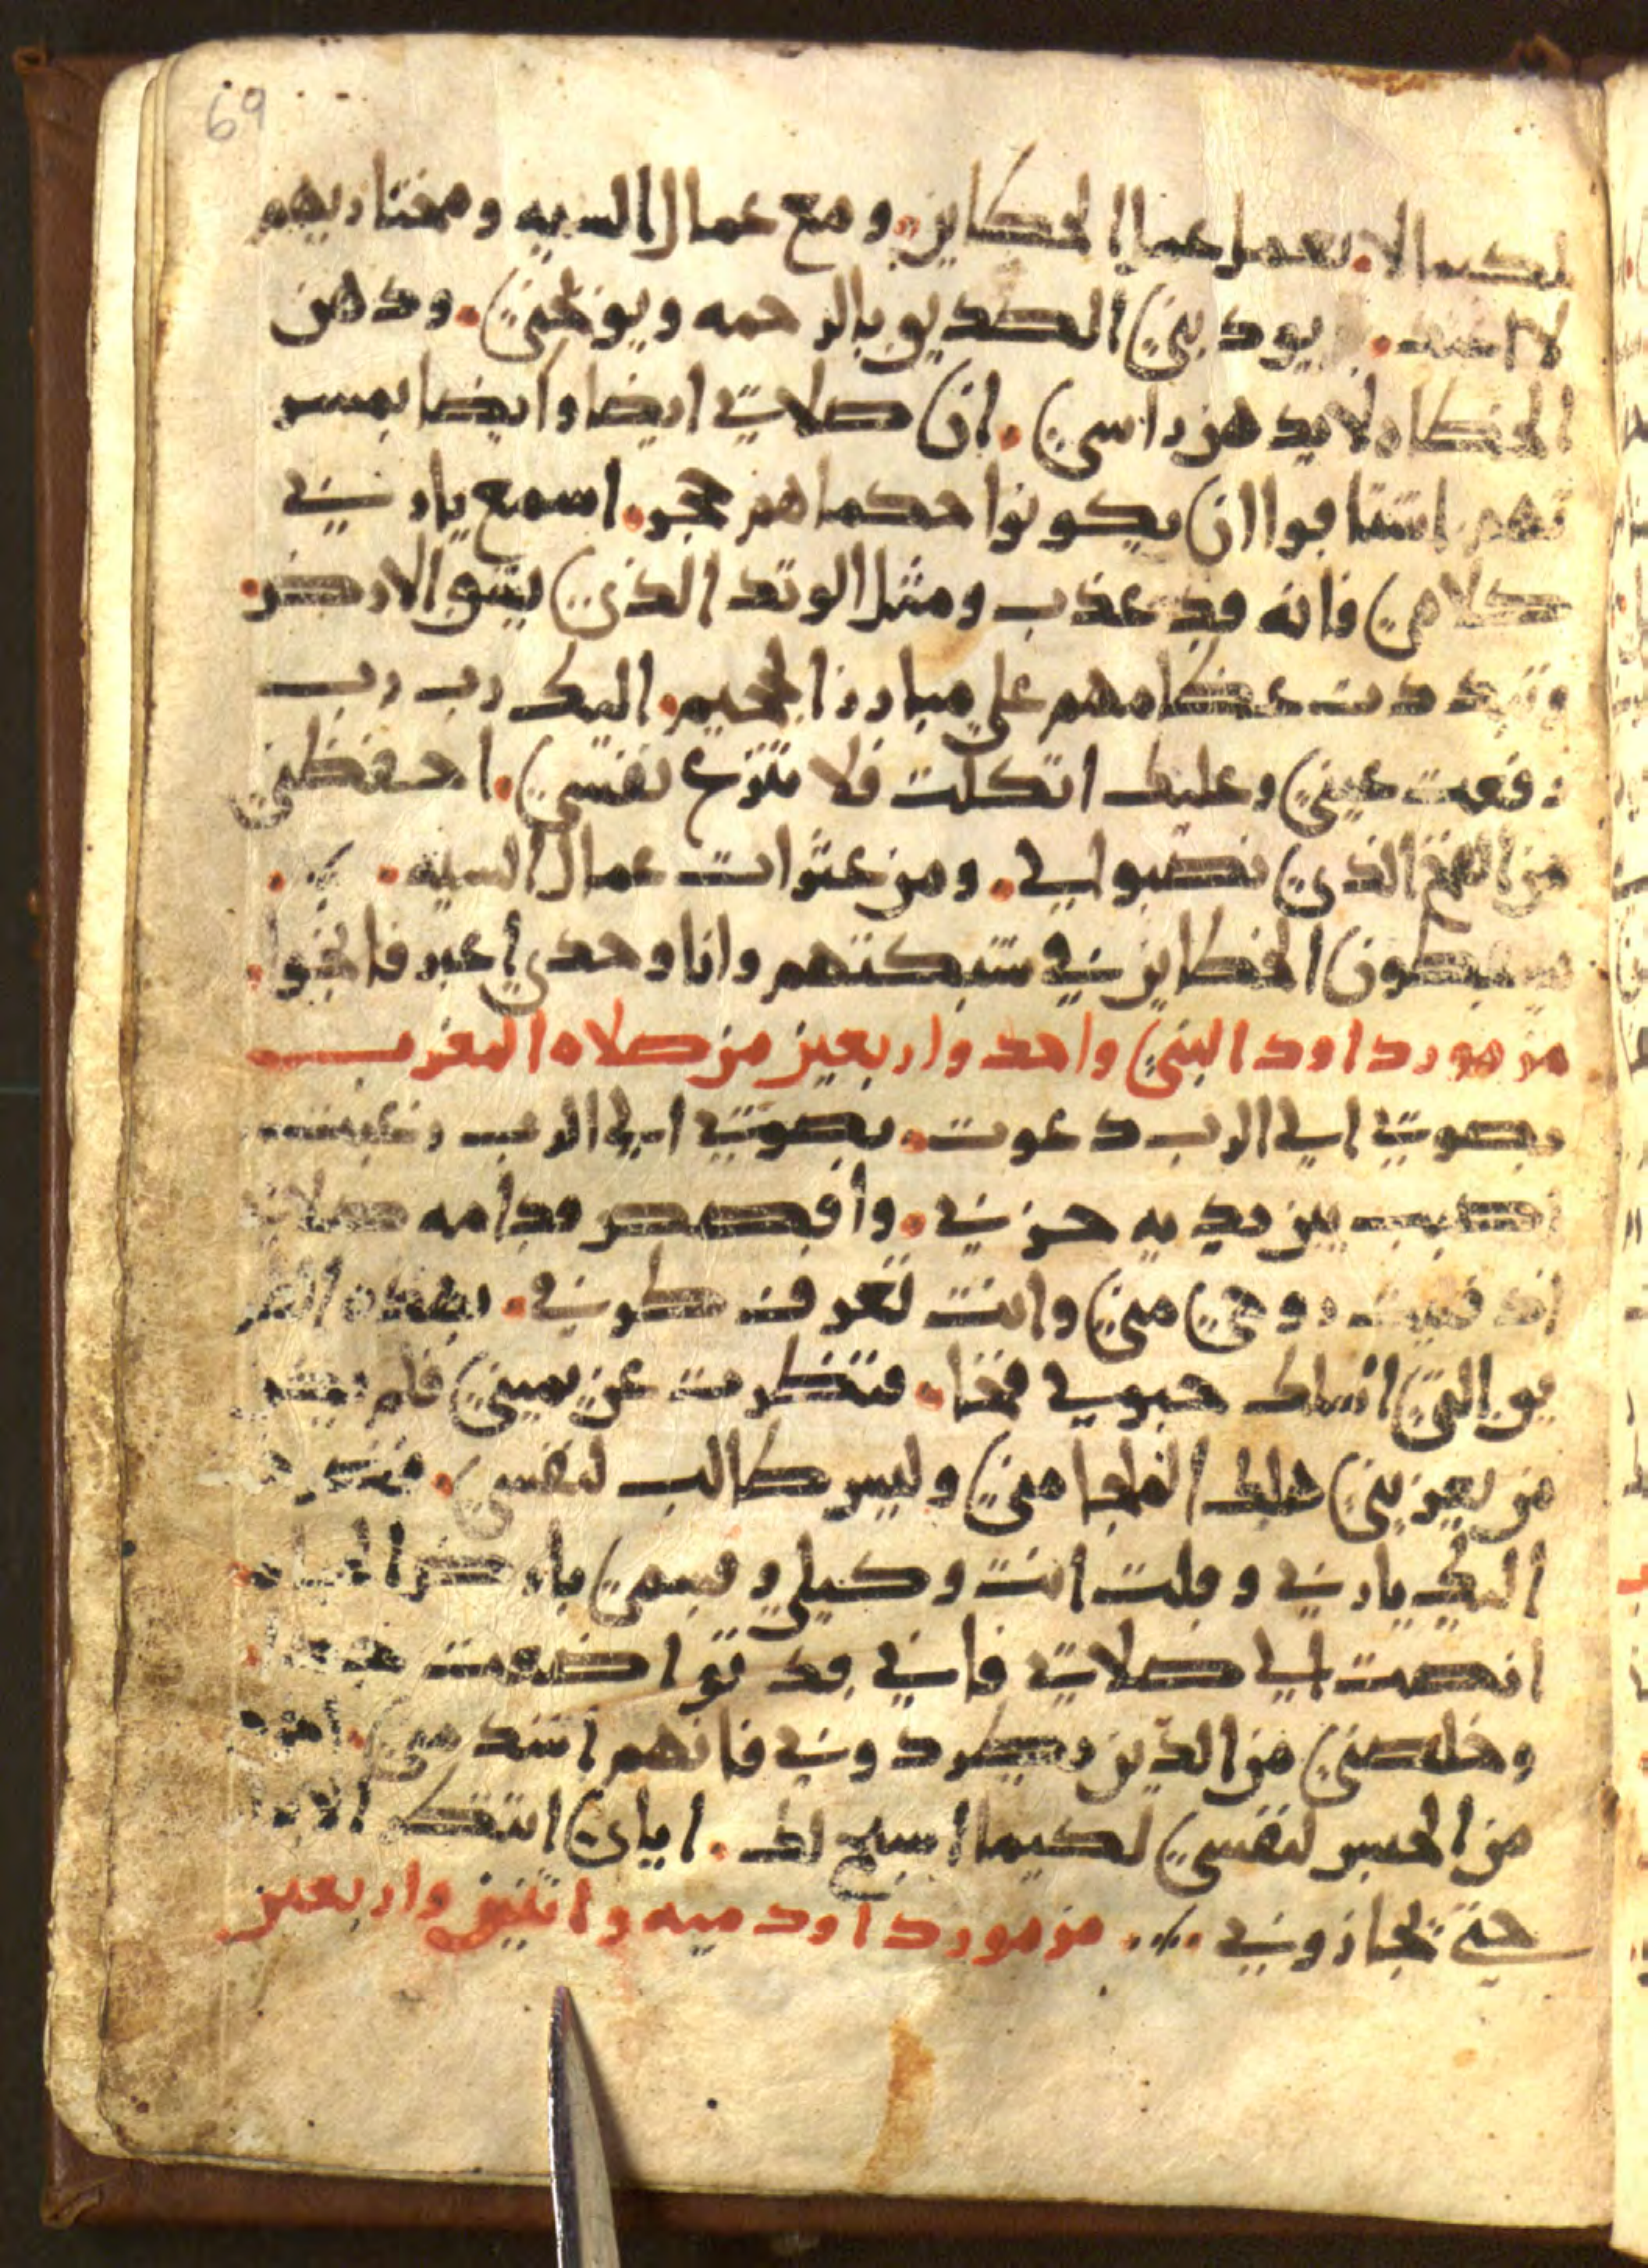 69
لكيما لا يعمل عمل الخطاين. ومع عمال السيه ومختاريهم
لا اتفق. يودبني الصديق بالرحمه ويوبخني. ودهن
الخطاه لا يدهن راسي. ان صلاتي ايضا وايضا بمسر
تهم اشتاقوا ان يكونوا حكماهم بحجر. اسمع يا رب
كلامي فانه قد عذب ومثل الوتد الذي يشق الارض.
وتبددت عظامهم على مبارز الجحيم. اليك رب رب
رفعت عيني وعليك اتكلت فلا تنزع نفسي. احفظني
من الفخ الذي نصبوا لي. ومن عثرات عمال السيه.
يسقطون الخطاين في شبكتهم وانا وحدي اعبر فانجوا.
مزمور داود النبي واحد واربعين من صلاه المغرب
بصوتي الى الرب دعوت. بصوتي الى الرب رغبت
اصبب بين يديه حزني. واقصص قدامه صلاتي
اذ فنيت روحي مني وانت تعرف طرقي. بهذه الطر
يق التي اسلك خبوا لي فخا. فنظرت عن يميني فلم
من يعزيني هلك الملجا مني وليس طالب لنفسي.
اليك يا رب وقلت انت وكيلي وقسمي بارض الحياه.
انصت الى صلاتي فاني قد تواضعت جدا.
وخلصني من الذين يطردوني فانهم اشد مني. اخرج
من الحبس لنفسي لكيما اسبح لك. اياي انتظر الابرار
حتى تجازوني مزمور داود ميه واثنين واربعين